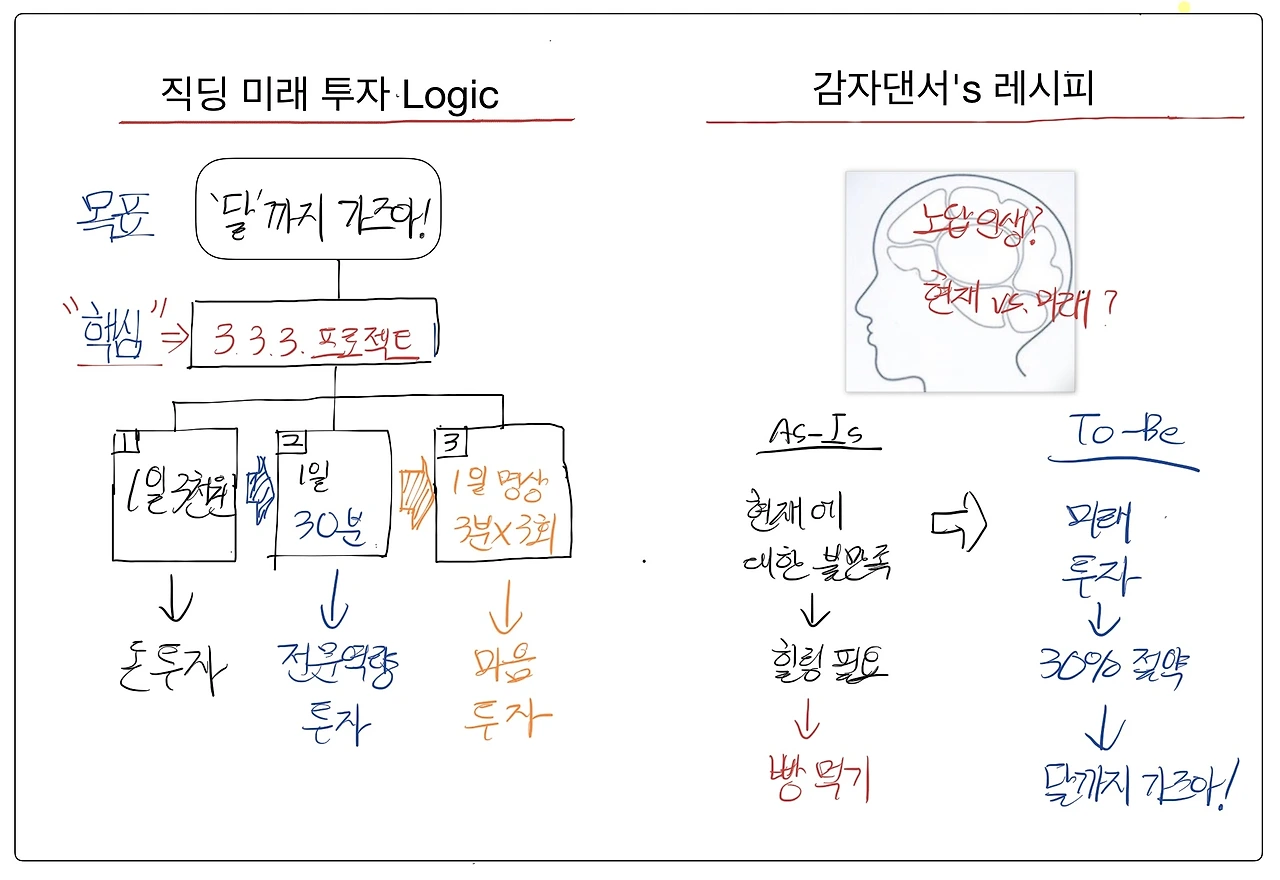 직딩 미래 투자 Logic
목표
'달'까지 가즈아!
"핵심" ⇒
3.3.3. 프로젝트
1
1일 3천원
2
1일
30분
3
1일 명상
3분X3회
돈 투자
전문역량
투자
마음
투자
감자댄서's 레시피
노답 인생?
현재 vs. 미래?
As-Is
현재에
대한 불만족
힐링 필요
빵 먹기
To-Be
미래
투자
30% 절약
달까지 가즈아!